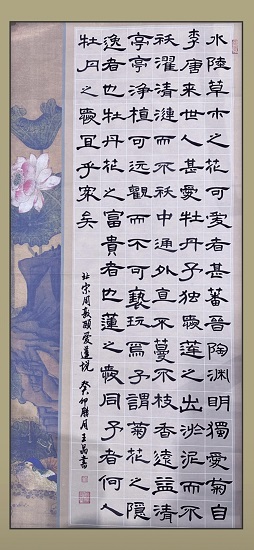 水陸草木之花可愛者甚蕃晉陶淵明獨愛菊自
李唐來世人甚愛牡丹予獨愛蓮之出淤泥而不
染濯清漣而不妖中通外直不蔓不枝香遠益清
亭亭淨植可遠觀而不可褻玩焉予謂菊花之隱
逸者也牡丹花之富貴者也蓮之愛同予者何人
牡丹之愛宜乎眾矣
北宋周敦頤愛蓮說 癸卯腊月王昌書